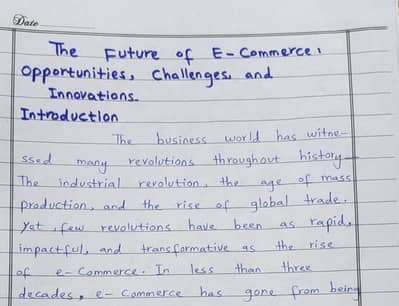 Date
The Future of E-Commerce:
Opportunities, Challenges, and
Innovations.
Introduction
The business world has witne-
ssed many revolutions throughout history-
The industrial revolution, the age of mass
production, and the rise of global trade.
Yet, few revolutions have been as rapid,
impactful, and transformative as the rise
of e-commerce. In less than three
decades, e-commerce has gone from being